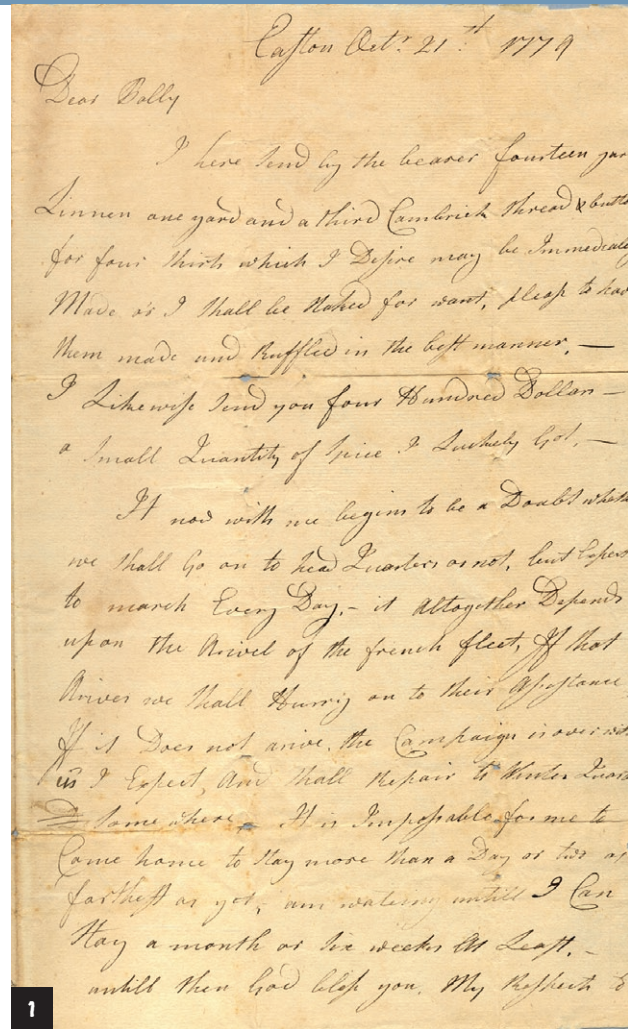 Easton Octr. 21st. 1779
Dear Polly
I here Send by the bearer fourteen yar
Linnen one yard and a third Cambrick thread & butto
for four Shirts which I Desire may be Immediatly
Made as I Shall be Naked for want, please to hav
them made and Ruffled in the best manner. —
I Likewise Send you four Hundred Dollars —
a Small Quantity of Spice I Luckely Got. —
It now with us begins to be a Doubt wheth
we Shall Go on to head Quarters or not, but Expect
to march Every Day. - it altogether Depends
upon the Arivel of the french fleet, If that
Arives we Shall Hurry on to their Assistance
If it Does not arive, the Campaign is over with
us I Expect, And Shall Repair to Winter Quar
Some where It is Impossable for me to
Come home to Stay more than a Day or two at
farthest as yet, am wateing untill I Can
Stay a month or Six weeks At Least. -
untill then God bless you. My Respects to
1